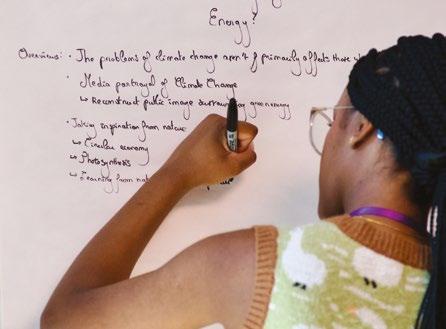 Energy?
Overview: • The problems of climate change aren't & primarily affects those
• Media portrayal of Climate Change
↳ Reconstruct public image surrounding green energy
• Taking inspiration from nature
↳ Circular economy
↳ Photosynthesis
↳ Learning from